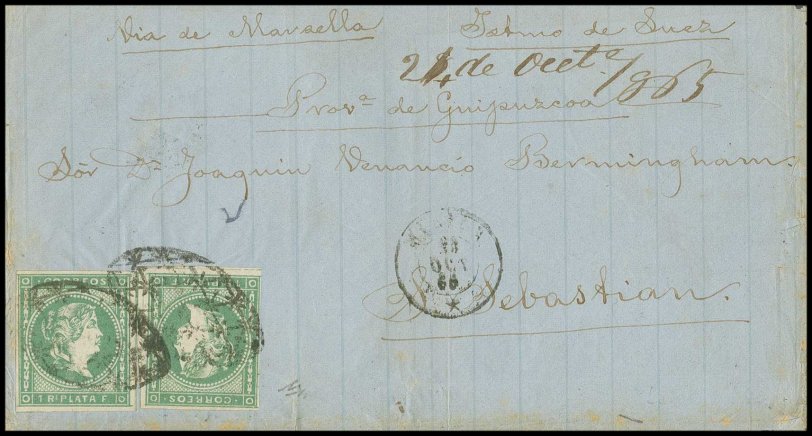 Via de Marsella Istmo de Suez
24 de Octe /865
Prova de Guipuzcoa
Sór Dn Joaquin Venancio Bermingham.
OCT
S. Sebastian.
CORREOS
1 Rl PLATA F.
1 Rl PLATA F.
CORREOS